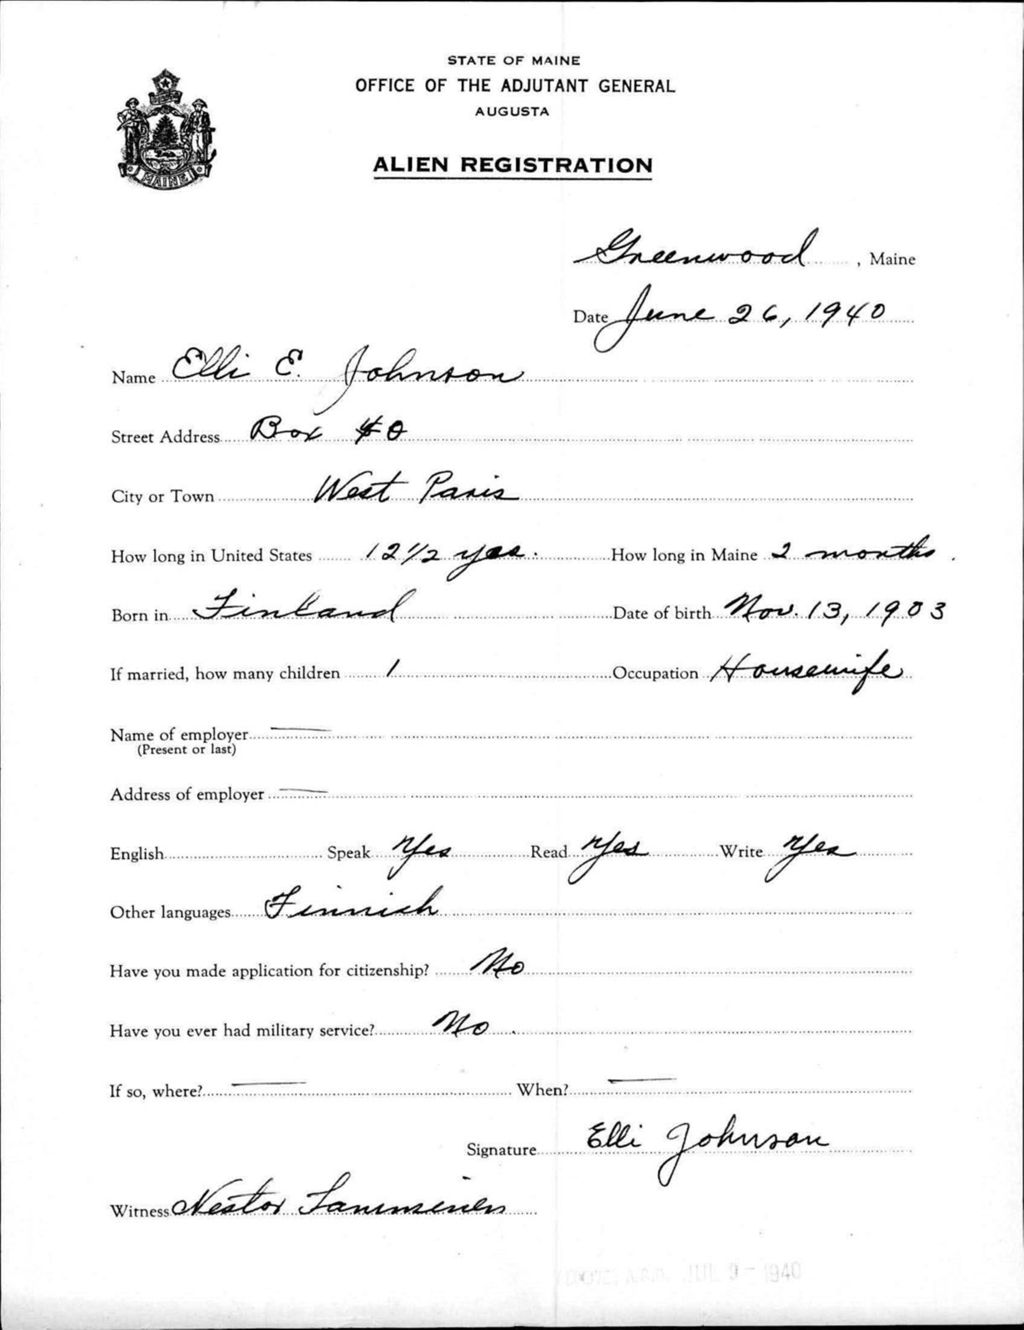 STATE OF MAINE
OFFICE OF THE ADJUTANT GENERAL
AUGUSTA
ALIEN REGISTRATION
MAINE
Greenwood, Maine
Date June 26, 1940
Name Elli E. Johnson
Street Address Box 40
City or Town West Paris
How long in United States 12 1/2 yrs. How long in Maine 2 months.
Born in Finland Date of birth Nov. 13, 1903
If married, how many children 1 Occupation Housewife
Name of employer —
(Present or last)
Address of employer —
English Speak Yes Read Yes Write Yes
Other languages Finnish
Have you made application for citizenship? No
Have you ever had military service? No.
If so, where? — When? —
Signature Elli Johnson
Witness Nestor Tamminen
JUL 9 - 1940